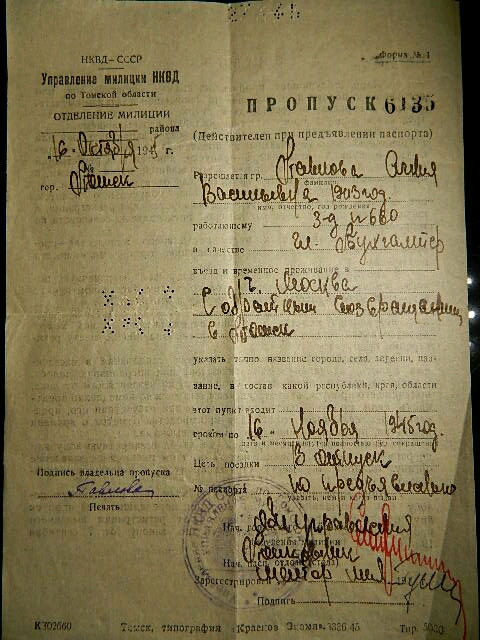 НКВД—СССР
Управление милиции НКВД
по Томской области
ОТДЕЛЕНИЕ МИЛИЦИИ
района
16 Октября 1945 г.
гор. Томск
Форма № 1
ПРОПУСК 6135
(Действителен при предъявлении паспорта)
Разрешается гр. Павлова Анна
фамилия
Васильевна 1903 год
имя, отчество, год рождения
работающему З-д № 660
в качестве Гл. Бухгалтер
въезд и временное проживание в
г. Москва
С обратным
в Томск
указать точно название города, села, деревни, наз-
вание, в состав какой республики, края, области
этот пункт входит
сроком по 16 - Ноября 1945 год.
Цель поездки В отпуск
№ паспорта по предъявлению
Подпись владельца пропуска
Павлова
Печать
Нач.
милиции
Нач. пасп. отдел. (стола)
Зарегистрирован
Подпись
К302660 Томск, типография «Красное Знамя» 3336-45 Тир. 5000